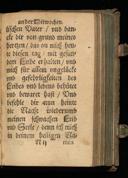 ander Mittwochen.
lischen Vatter / und dan-
cke dir von grund meines
hertzen / das du mich heu-
te diesen tag / mit gesun-
dem Leibe erhalten / und
mich für allem ungelück
und gefehrligkeiten des
Leibes und lebens behütet
und bewaret hast / Und
befehle dir auch heinte
die Nacht widerumb
meinen schwachen Leib
und Seele / denn ich mich
in deinem heiligen
M iij